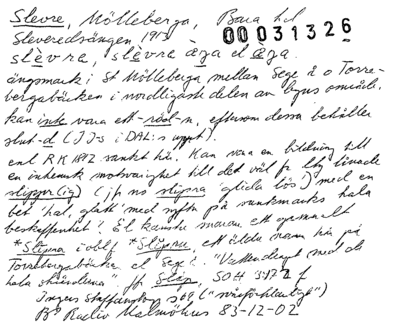 Slevre, Mölleberga, Bara hd
00031326
Sleveredsängen 1913
slèvra, slèvra æŋa el æŋa.
ängsmark i St Mölleberga mellan Sege å o Torre-
bergabäcken i nordligaste delen av byns område.
kan inte vara ett -röd-n, eftersom dessa behåller
slut-d (JJ:s i DAL:s uppt).
enl RK 1812 sankt här. Kan vara en bildning till
en inhemsk motsvarighet till det väl fr lty lånade
slipper(ig) (jfr no slipra 'glida lös') med en
bet 'hal, glatt' med syftn på sankmarks hala
beskaffenhet. El kanske snarare ett gammalt
*Slipra i oblf *Slipru, ett äldre namn här på
Torrebergabäcken el Sege å. "Vattendraget med de
hala stränderna". jfr Slip, SOH
Ingers Staffanstorp s 69
Bo Ralv Malmöhus 83-12-02